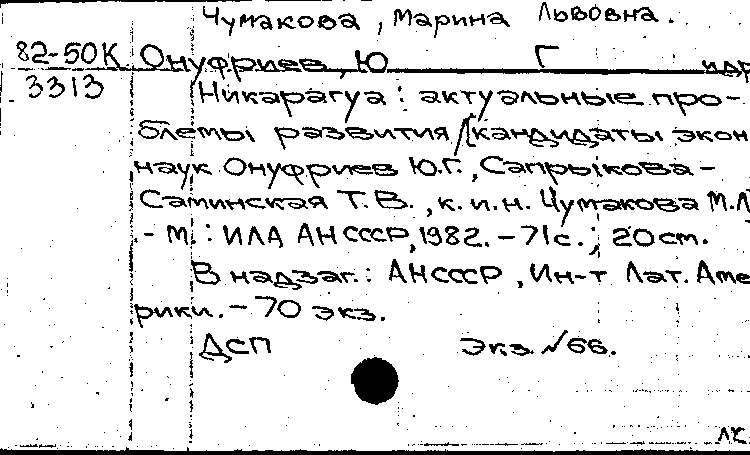 Чумакова, Марина Львовна.
82-50К Онуфриев, Ю Г и др
3313 Никарагуа: актуальные про-
блемы развития /[кандидаты экон
наук Онуфриев Ю.Г., Сапрыкова-
Саминская Т.В., к.и.н. Чумакова М.Л
- М.: ИЛА АН СССР, 1982. - 71с.; 20 см.
В надзаг.: АН СССР, Ин-т Лат. Аме
рики. - 70 экз.
ДСП Экз. №66.